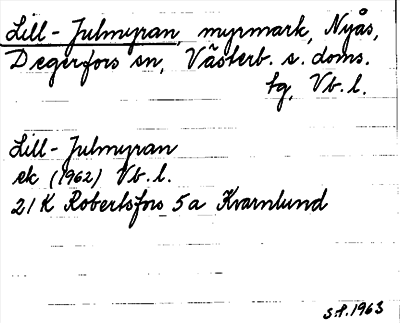 Lill-Julmyran, myrmark, Nyås,
Degerfors sn, Västerb. s. doms.
tg, Vb. l.
Lill-Julmyran
ek (1962) Vb. l.
21 K Robertsfors 5a Kvarnlund
S.P. 1963